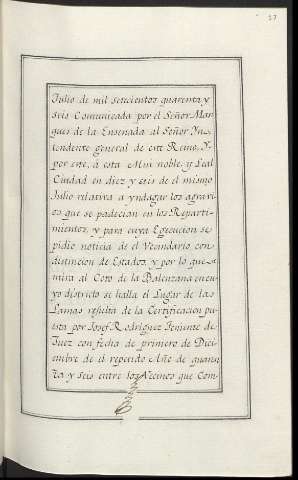 27
Julio de mil setecientos quarenta y
seis Comunicada por el Señor Mar-
ques de la Ensenada al Señor Yn-
tendente general de este Reino, Y
por este, à esta Mui noble, y Leal
Ciudad en diez y seis de el mismo
Julio relativa a yndagar los agravi-
os que se padecian en los Reparti-
mientos, y para cuya Egecucion se
pidio noticia de el Vecindario con
distincion de Estados, y por lo que
mira al Coto de la Balenzana en cu
yo distrito se halla el Lugar de las
Lamas resulta de la Certificacion pu
esta por Josef Rodriguez Teniente de
Juez con fecha de primero de Dici-
embre de el repetido Año de quaren
ta y seis entre los Vecinos que Com-